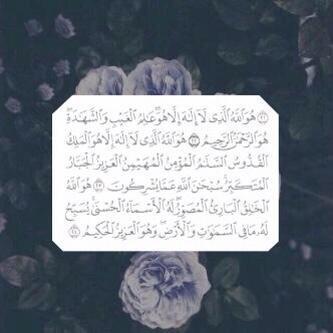 ٢١ هُوَ ٱللَّهُ ٱلَّذِى لَآ إِلَٰهَ إِلَّا هُوَۖ عَٰلِمُ ٱلْغَيْبِ وَٱلشَّهَٰدَةِۖ
هُوَ ٱلرَّحْمَٰنُ ٱلرَّحِيمُ ٢٢ هُوَ ٱللَّهُ ٱلَّذِى لَآ إِلَٰهَ إِلَّا هُوَ ٱلْمَلِكُ
ٱلْقُدُّوسُ ٱلسَّلَٰمُ ٱلْمُؤْمِنُ ٱلْمُهَيْمِنُ ٱلْعَزِيزُ ٱلْجَبَّارُ
ٱلْمُتَكَبِّرُۚ سُبْحَٰنَ ٱللَّهِ عَمَّا يُشْرِكُونَ ٢٣ هُوَ ٱللَّهُ
ٱلْخَٰلِقُ ٱلْبَارِئُ ٱلْمُصَوِّرُۖ لَهُ ٱلْأَسْمَآءُ ٱلْحُسْنَىٰۚ يُسَبِّحُ
لَهُۥ مَا فِى ٱلسَّمَٰوَٰتِ وَٱلْأَرْضِۖ وَهُوَ ٱلْعَزِيزُ ٱلْحَكِيمُ ٢٤